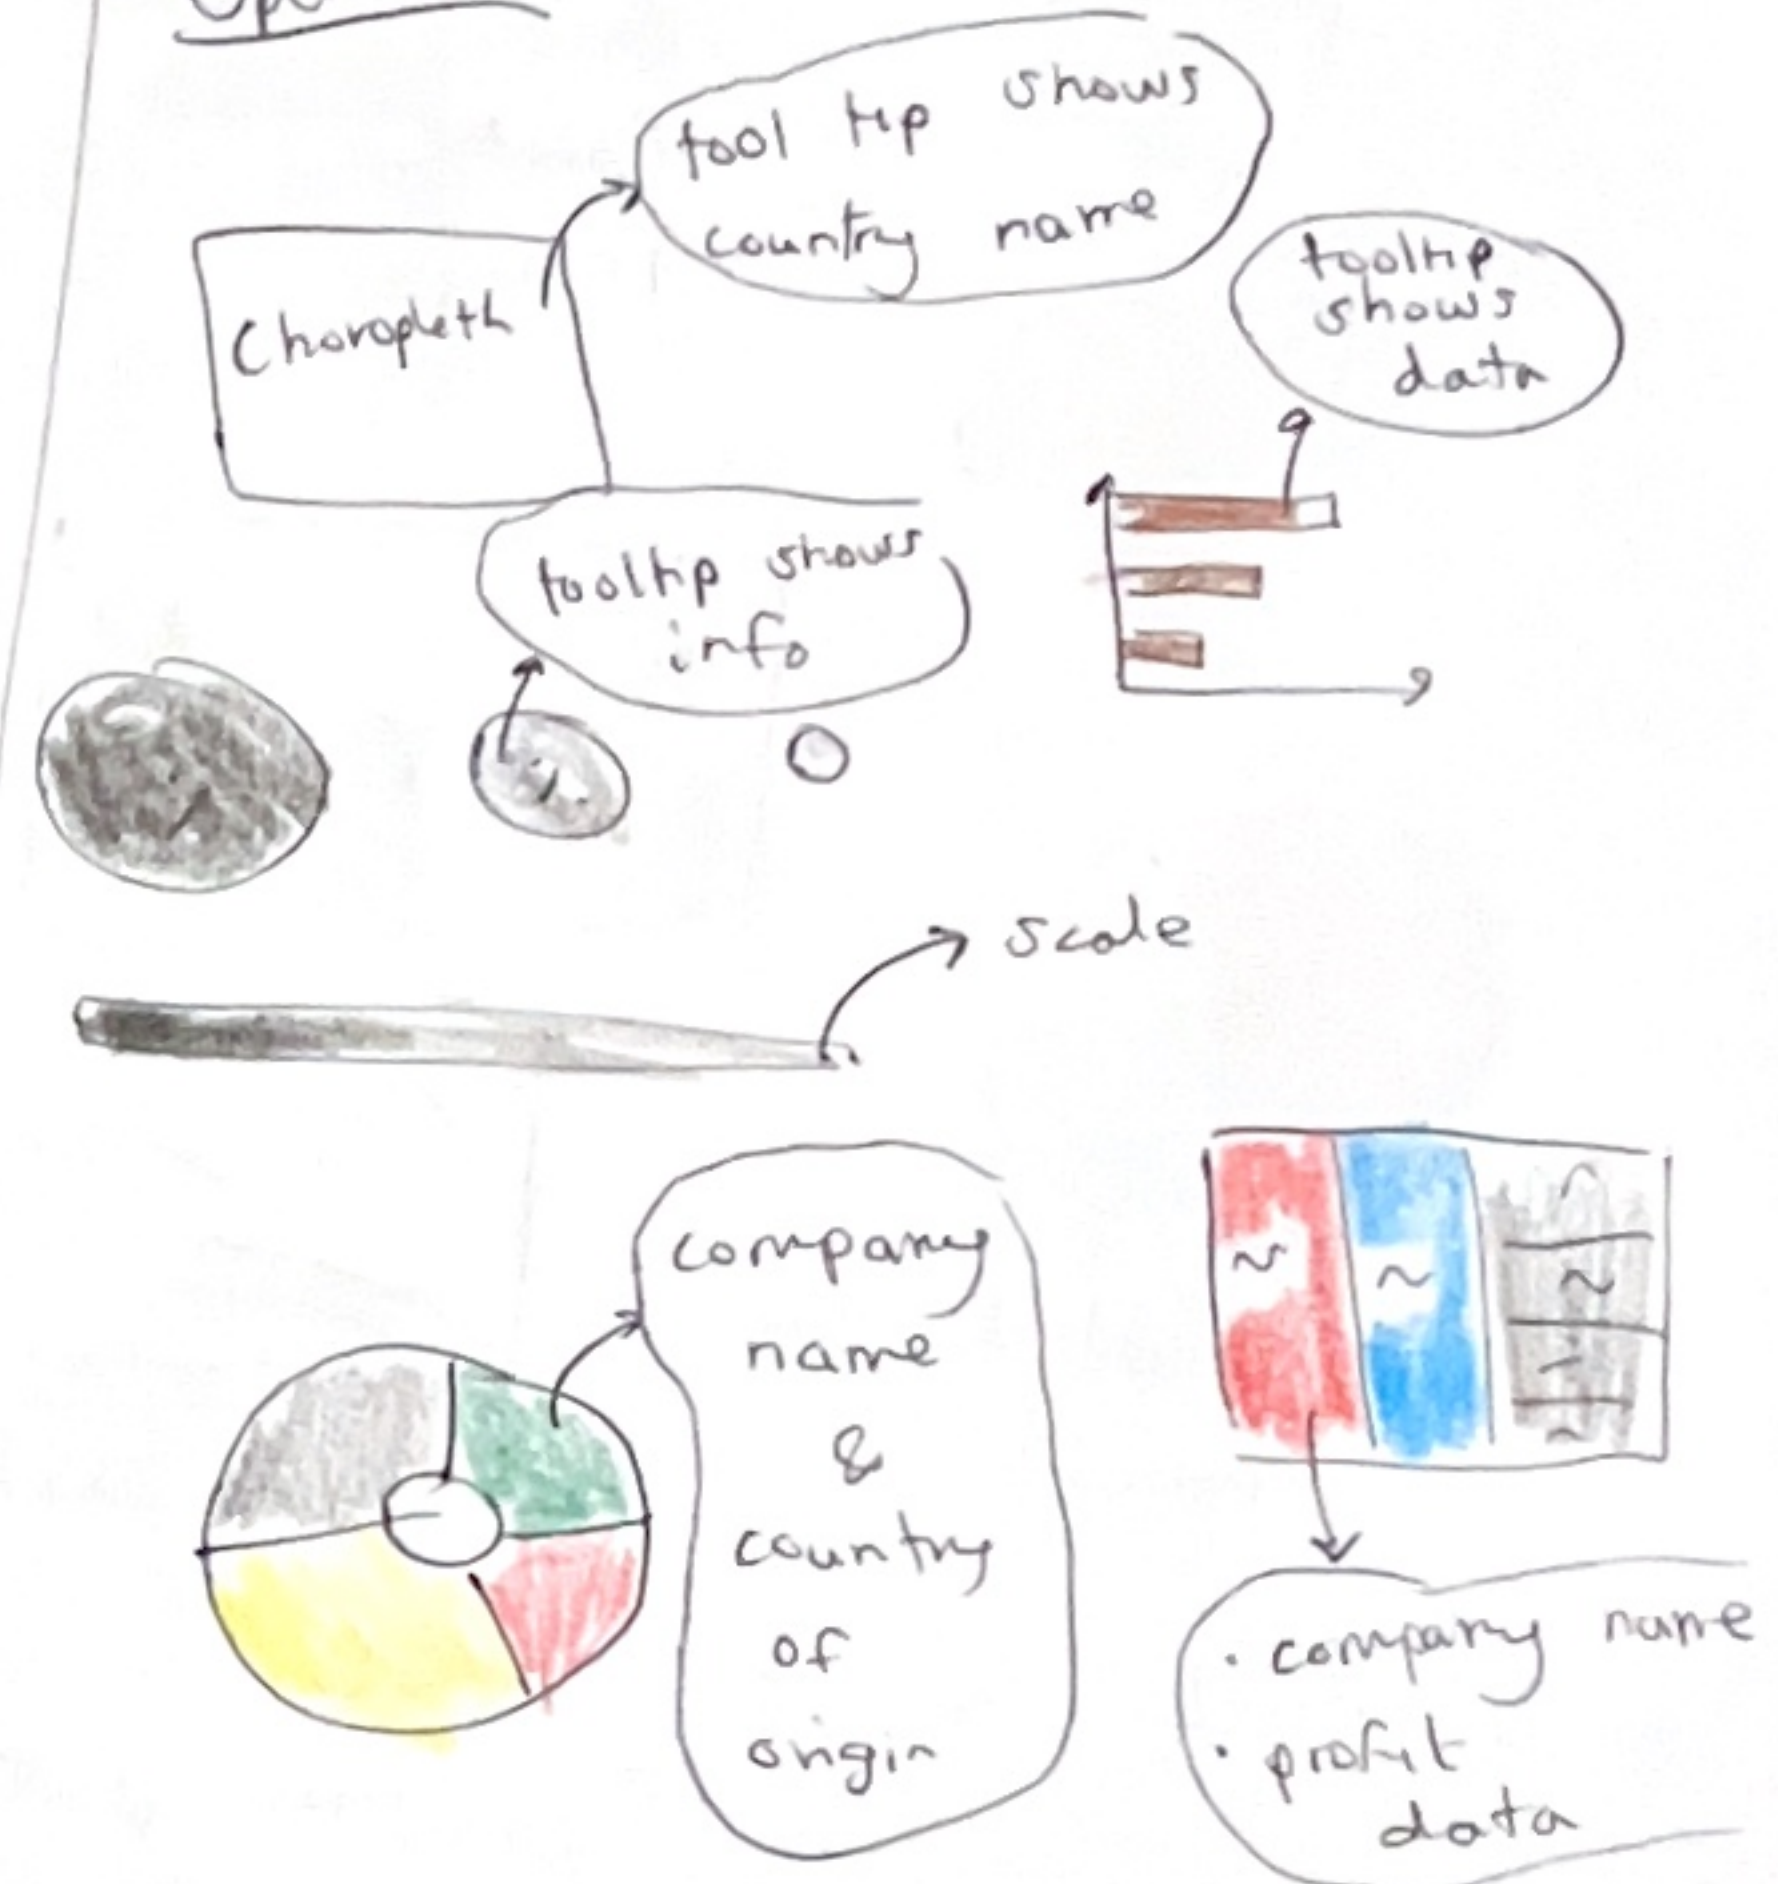 tool tip shows
country name
Choropleth
tooltip
shows
data
tooltip shows
info
scale
company
name
&
country
of
origin
• company name
• profit
data